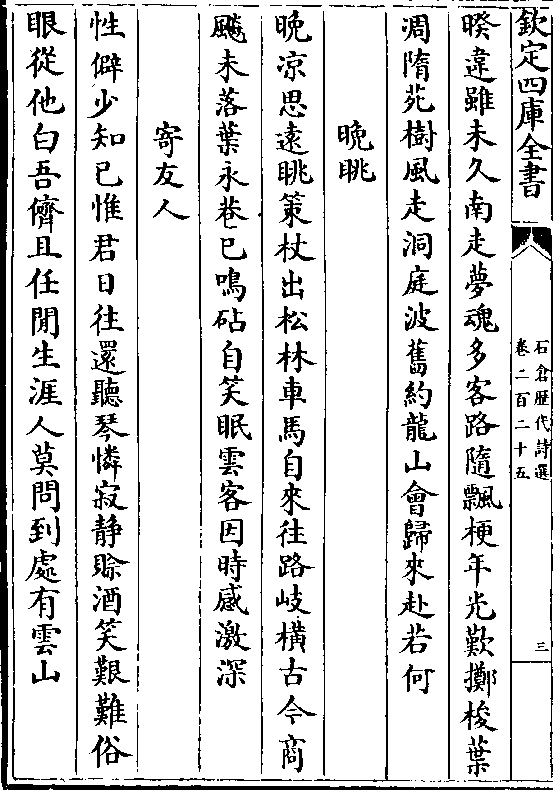 欽定四庫全書
石倉歴代詩選
卷二百二十五
三
暌違雖未久南走夢魂多客路隨飄梗年光歎擲梭葉
凋隋苑樹風走洞庭波舊約龍山會歸來赴若何
晩眺
晩凉思遠眺策杖出松林車馬自來往路岐橫古今商
飇未落葉永巷已鳴砧自笑眠雲客因時感激深
寄友人
性僻少知已惟君日往還聽琴憐寂静賒酒笑艱難俗
眼從他白吾儕且任閒生涯人莫問到處有雲山